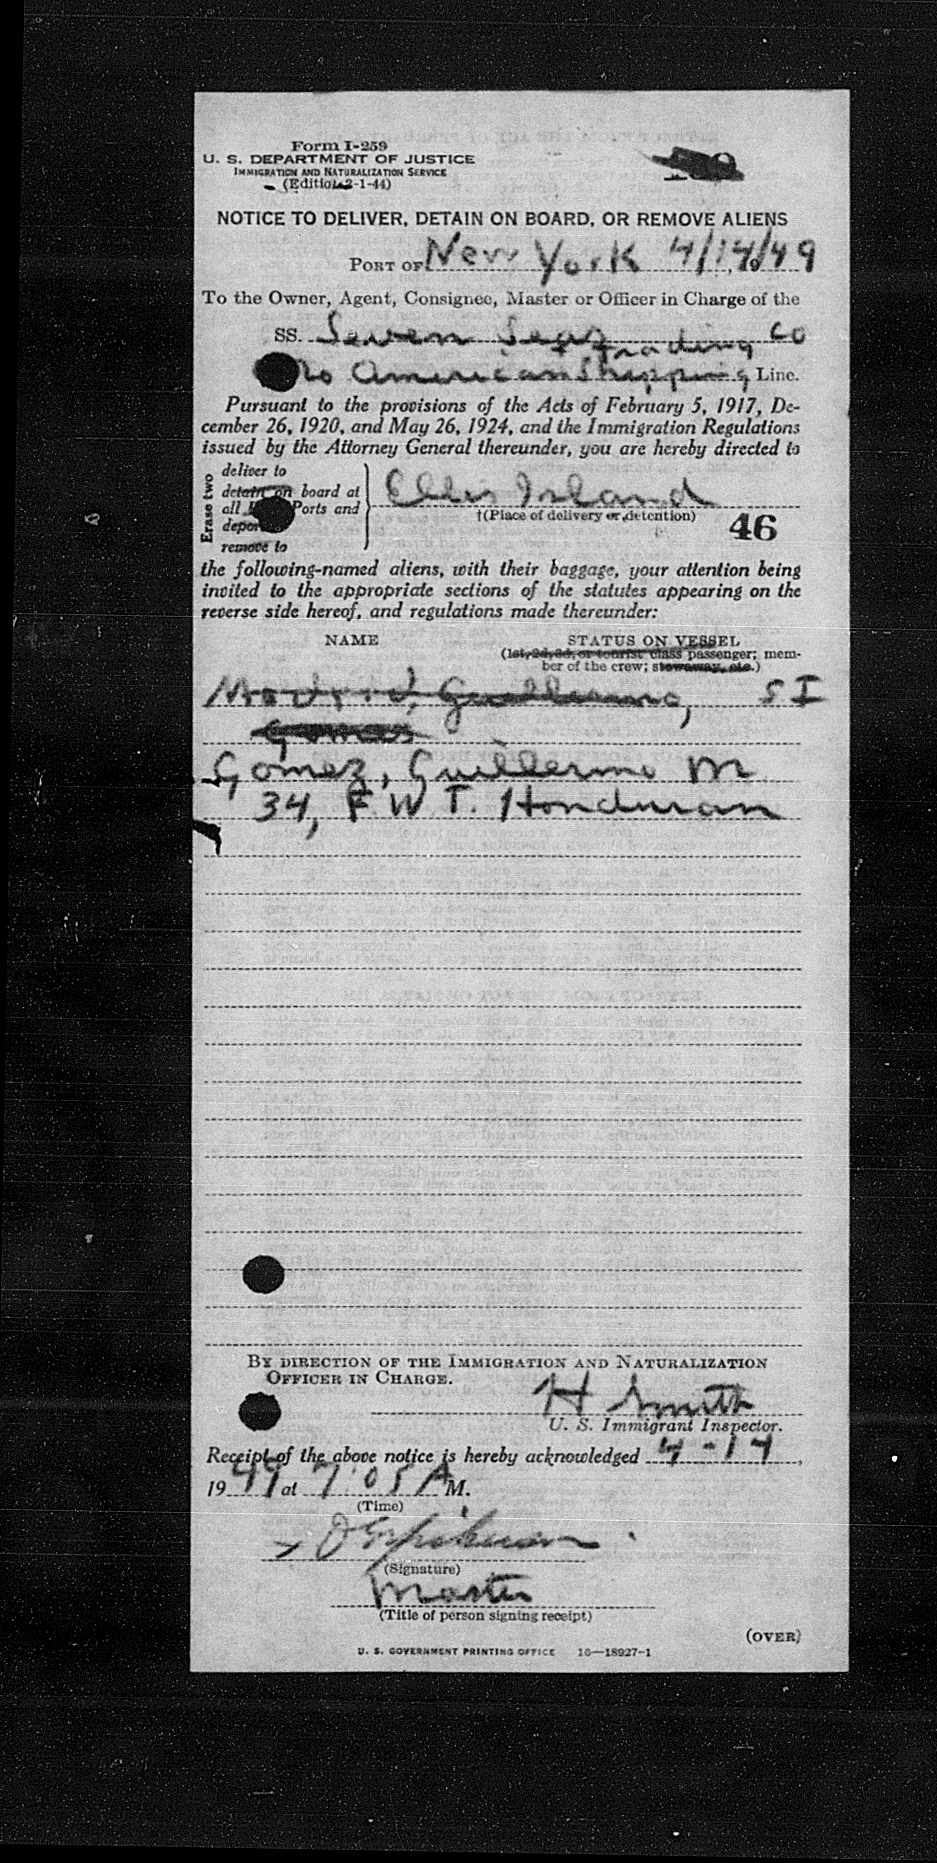 Form I-259
U. S. DEPARTMENT OF JUSTICE
IMMIGRATION AND NATURALIZATION SERVICE
(Edition 2-1-44)
NOTICE TO DELIVER, DETAIN ON BOARD, OR REMOVE ALIENS
PORT OF New York 4/14/49
To the Owner, Agent, Consignee, Master or Officer in Charge of the
SS. Seven Seas Trading Co
American Shipping Line.
Pursuant to the provisions of the Acts of February 5, 1917, De-
cember 26, 1920, and May 26, 1924, and the Immigration Regulations
issued by the Attorney General thereunder, you are hereby directed to
Erase two
deliver to
detain on board at
all Ports and
remove to
Ellis Island
†(Place of delivery or detention)
46
the following-named aliens, with their baggage, your attention being
invited to the appropriate sections of the statutes appearing on the
reverse side hereof, and regulations made thereunder:
NAME STATUS ON VESSEL
(1st, 2d, 3d, or tourist class passenger; mem-
ber of the crew; stowaway, etc.)
Guillermo, S I
Gomez
Gomez, Guillermo M
34, F. W. T. Honduran
BY DIRECTION OF THE IMMIGRATION AND NATURALIZATION
OFFICER IN CHARGE.
H Smith
U. S. Immigrant Inspector.
Receipt of the above notice is hereby acknowledged 4-14,
1949 at 7:05 A M.
(Time)
(Signature)
Master
(Title of person signing receipt)
(OVER)
U. S. GOVERNMENT PRINTING OFFICE 16—18927-1